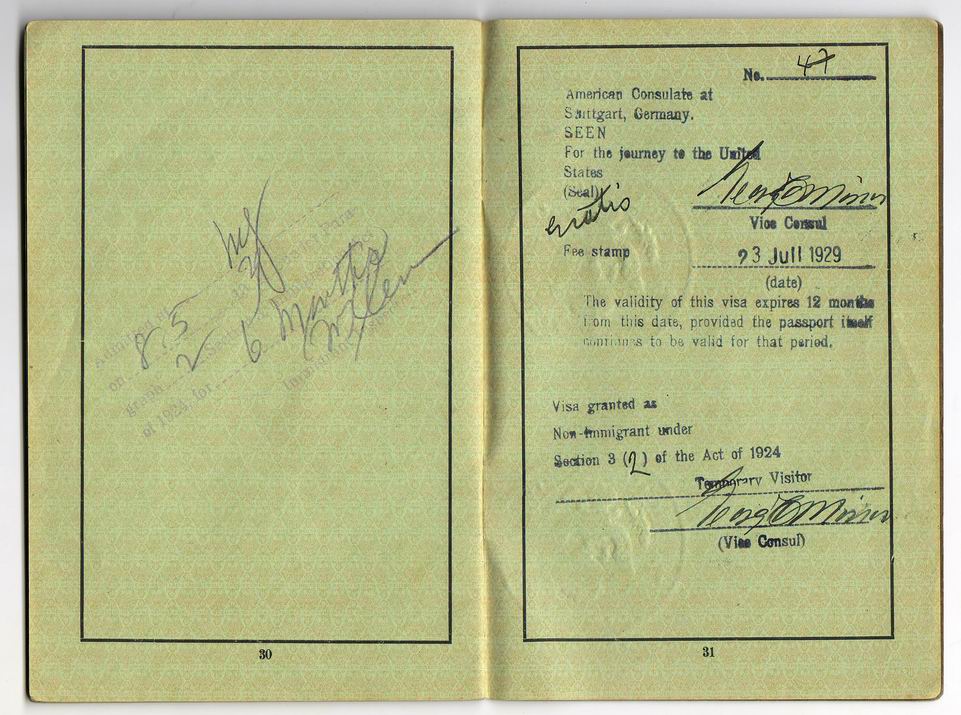 8 5
2
6 Months
of 1924, for
30
No. 47
American Consulate at
Stuttgart, Germany.
SEEN
For the journey to the United
States
(Seal)
Gratis
Vice Consul
Fee stamp
23 Juli 1929
(date)
The validity of this visa expires 12 months
from this date, provided the passport itself
continues to be valid for that period.
Visa granted as
Non-immigrant under
Section 3 (2) of the Act of 1924
Temporary Visitor
(Vice Consul)
31